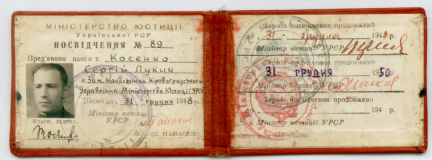 МІНІСТЕРСТВО ЮСТИЦІЇ
Української РСР
ПОСВІДЧЕННЯ № 89
Пред'явник цього т. Косенко
Сергій Лукич
є Зам. Начальника Кіровоградського
Управління Міністерства Юстиції УРСР
Дійсне до 31 грудня 1948 р.
Міністр юстиції
УРСР
Термін посвідчення продовжено
до 31 грудня 194
Міністр юстиції
УРСР
31 ГРУДНЯ 50
Міністр юстиції
УРСР
Термін посвідчення продовжено
194 р.
Міністр юстиції УРСР